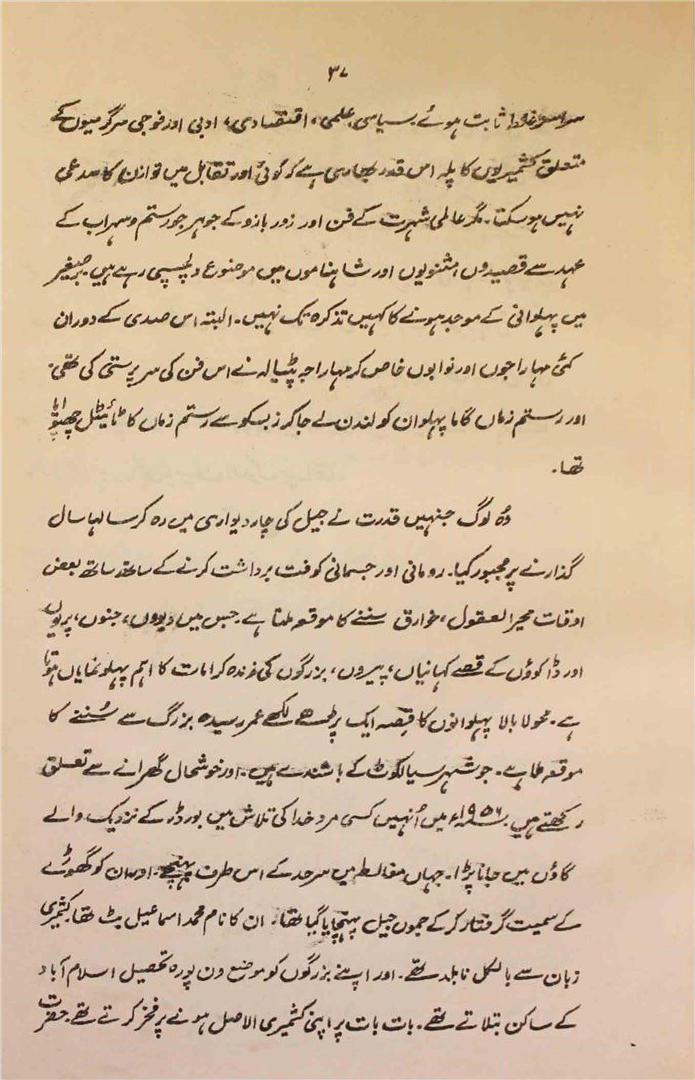 ۳۷
سراسر غلط ثابت ہوئے۔ سیاسی، علمی، اقتصادی، ادبی اور فوجی سرگرمیوں کے
متعلق کشمیریوں کا پلہ اس قدر بھاری ہے کہ کوئی اور تقابل میں توازن کا مدعی
نہیں ہو سکتا۔ مگر عالمی شہرت کے فن اور زور بازو کے جوہر جو رستم و سہراب کے
عہد سے قصیدوں، مثنویوں اور شاہناموں میں موضوع دلچسپی رہے ہیں۔ برصغیر
میں پہلوانی کے موجد ہونے کا کہیں تذکرہ تک نہیں۔ البتہ اس صدی کے دوران
کئی مہاراجوں اور نوابوں خاص کر مہاراجہ پٹیالہ نے اس فن کی سرپرستی کی تھی۔
اور رستم زماں گاما پہلوان کو لندن لے جا کر زبسکو سے رستم زماں کا ٹائیٹل چھیوایا
تھا۔
وہ لوگ جنہیں قدرت نے جیل کی چار دیواری میں رہ کر سالہا سال
گذارنے پر مجبور کیا۔ رومانی اور جسمانی کوفت برداشت کرنے کے ساتھ ساتھ بعض
اوقات محیر العقول، خوارق سننے کا موقعہ ملتا ہے جس میں دیووں، جنوں، پریوں
اور ڈاکوؤں کے قصے کہانیاں، پیروں، بزرگوں کی زندہ کرامات کا اہم پہلو نمایاں ہوتا
ہے۔ محولا بالا پہلوانوں کا قصہ ایک پڑھے لکھے عمر رسیدہ بزرگ سے سُننے کا
موقعہ ملا ہے۔ جو شہر سیالکوٹ کے باشندے ہیں۔ اور خوشحال گھرانے سے تعلق
رکھتے ہیں۔ ۱۹۵۶ء میں اُنہیں کسی مرد خدا کی تلاش میں بورڈر کے نزدیک والے
گاؤں میں جانا پڑا۔ جہاں مغالطہ میں سرحد کے اس طرف پہنچے۔ اور ان کو گھوڑے
کے سمیت گرفتار کر کے جموں جیل پہنچایا گیا تھا۔ ان کا نام محمد اسماعیل بٹ تھا۔ کشمیری
زبان سے بالکل نابلد تھے۔ اور اپنے بزرگوں کو موضع ون پورہ تحصیل اسلام آباد
کے ساکن بتلاتے تھے۔ بات بات پر اپنی کشمیری الاصل ہونے پر فخر کرتے تھے۔ حضرت